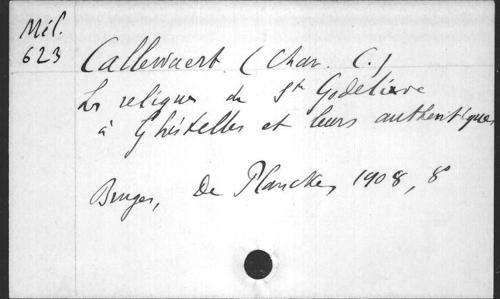 Mil.
623
Callewaert (Chan. C.)
Les reliques de Ste Godelieve
à Ghistelles et leurs authentiques
Bruges, De Plancke, 1908, 8°